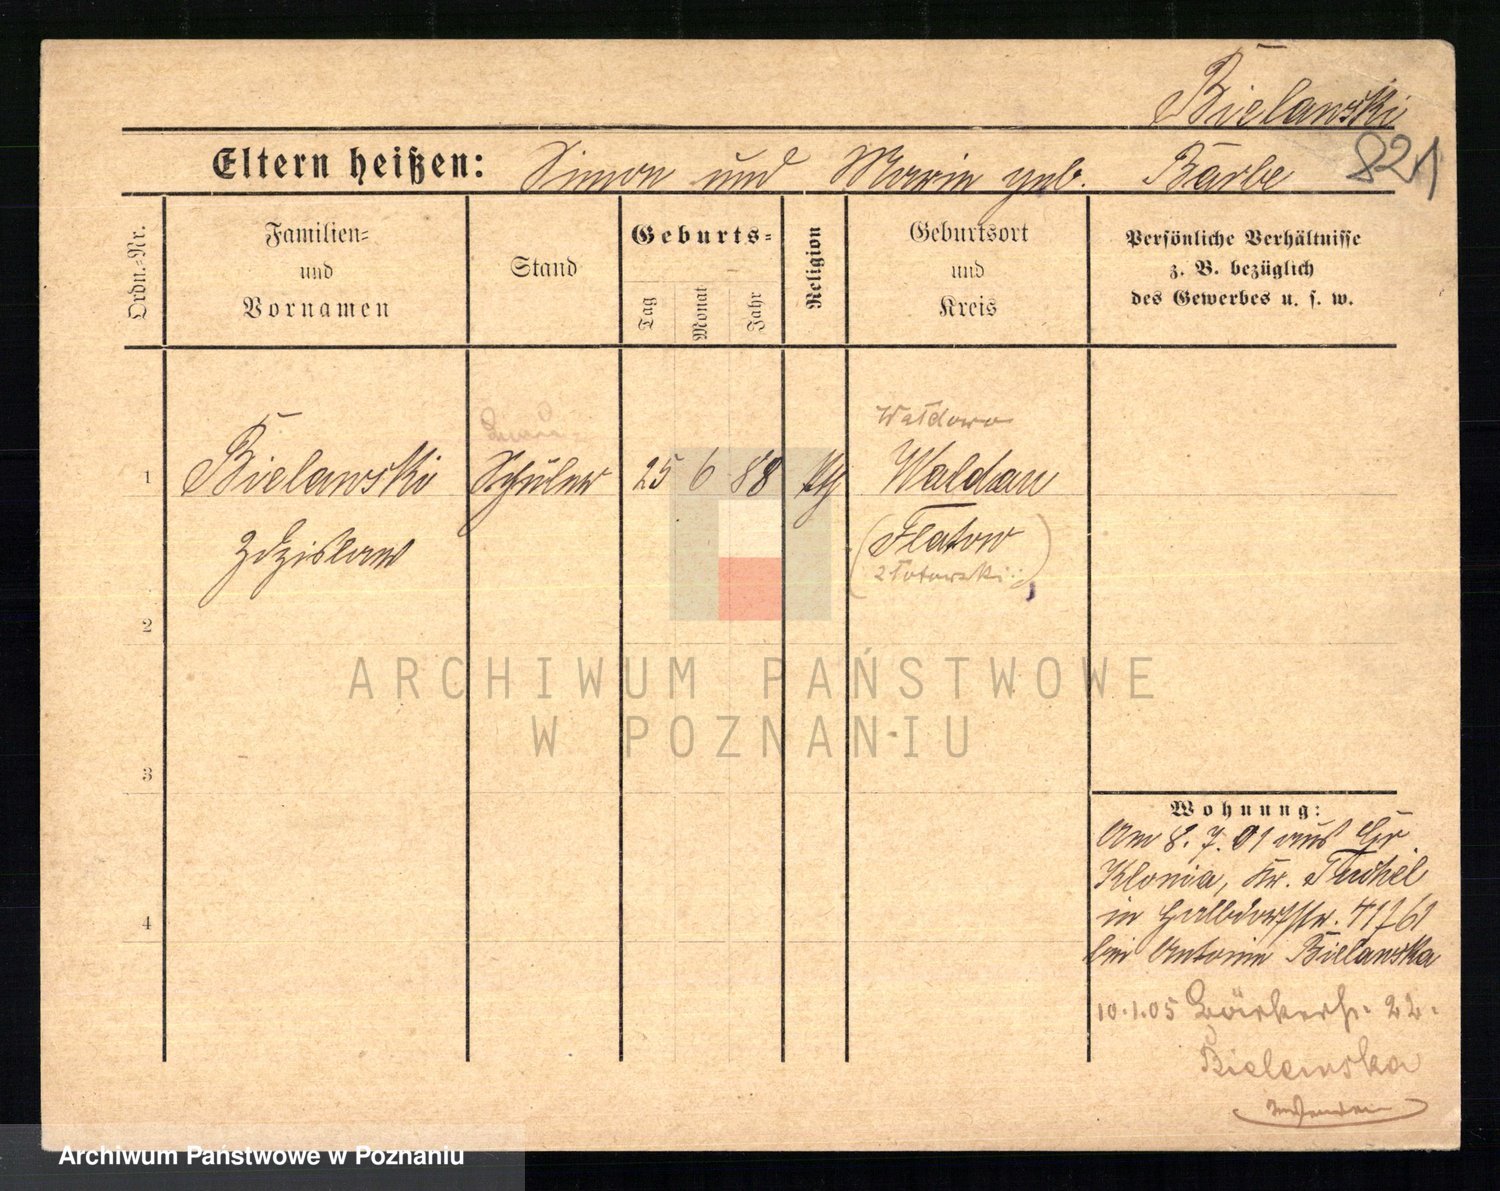 Bielawski
821
Eltern heißen: Simon und Marie geb. Bärbe
Ordn.=Nr.
Familien=
und
Vornamen
Stand
Geburts=
Tag
Monat
Jahr
Religion
Geburtsort
und
Kreis
Persönliche Verhältnisse
z. B. bezüglich
des Gewerbes u. s. w.
Wałdowo
1 Bielawski Schüler 25 6 88 kth Waldau
Zdzislaw (Flatow
złotowski)
2
3
4
ARCHIWUM PAŃSTWOWE
W POZNANIU
Wohnung:
Am 8. 7. 01 aus Gr
Klonia, Kr. Tuchel
in Halbdorfstr.
bei Antonie Bielawska
10.1.05 22.
Bielawska
Archiwum Państwowe w Poznaniu